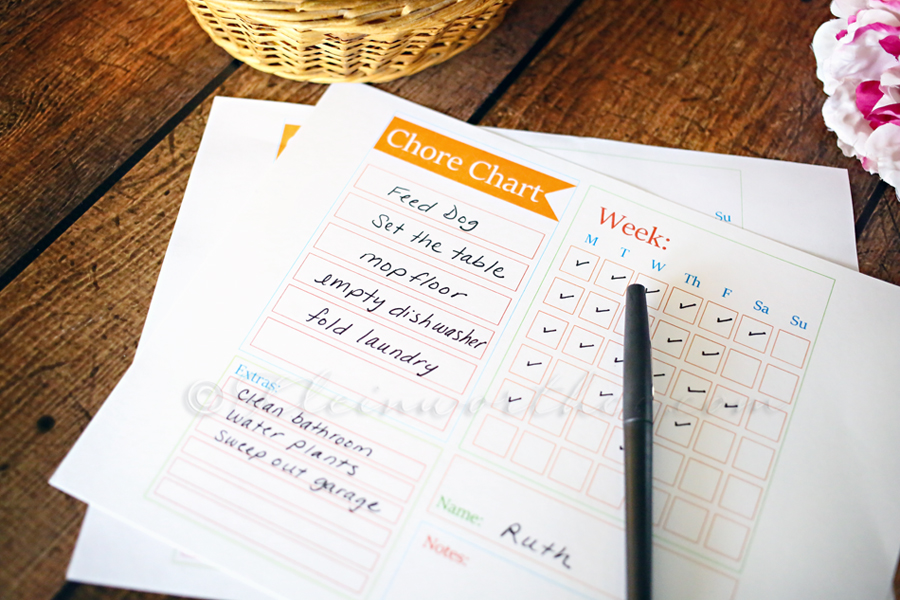 Chore Chart
Feed Dog
Set the table
mop floor
empty dishwasher
fold laundry
Extras:
clean bathroom
water plants
sweep out garage
Week:
M T W Th F Sa Su
Name: Ruth
Notes:
Su